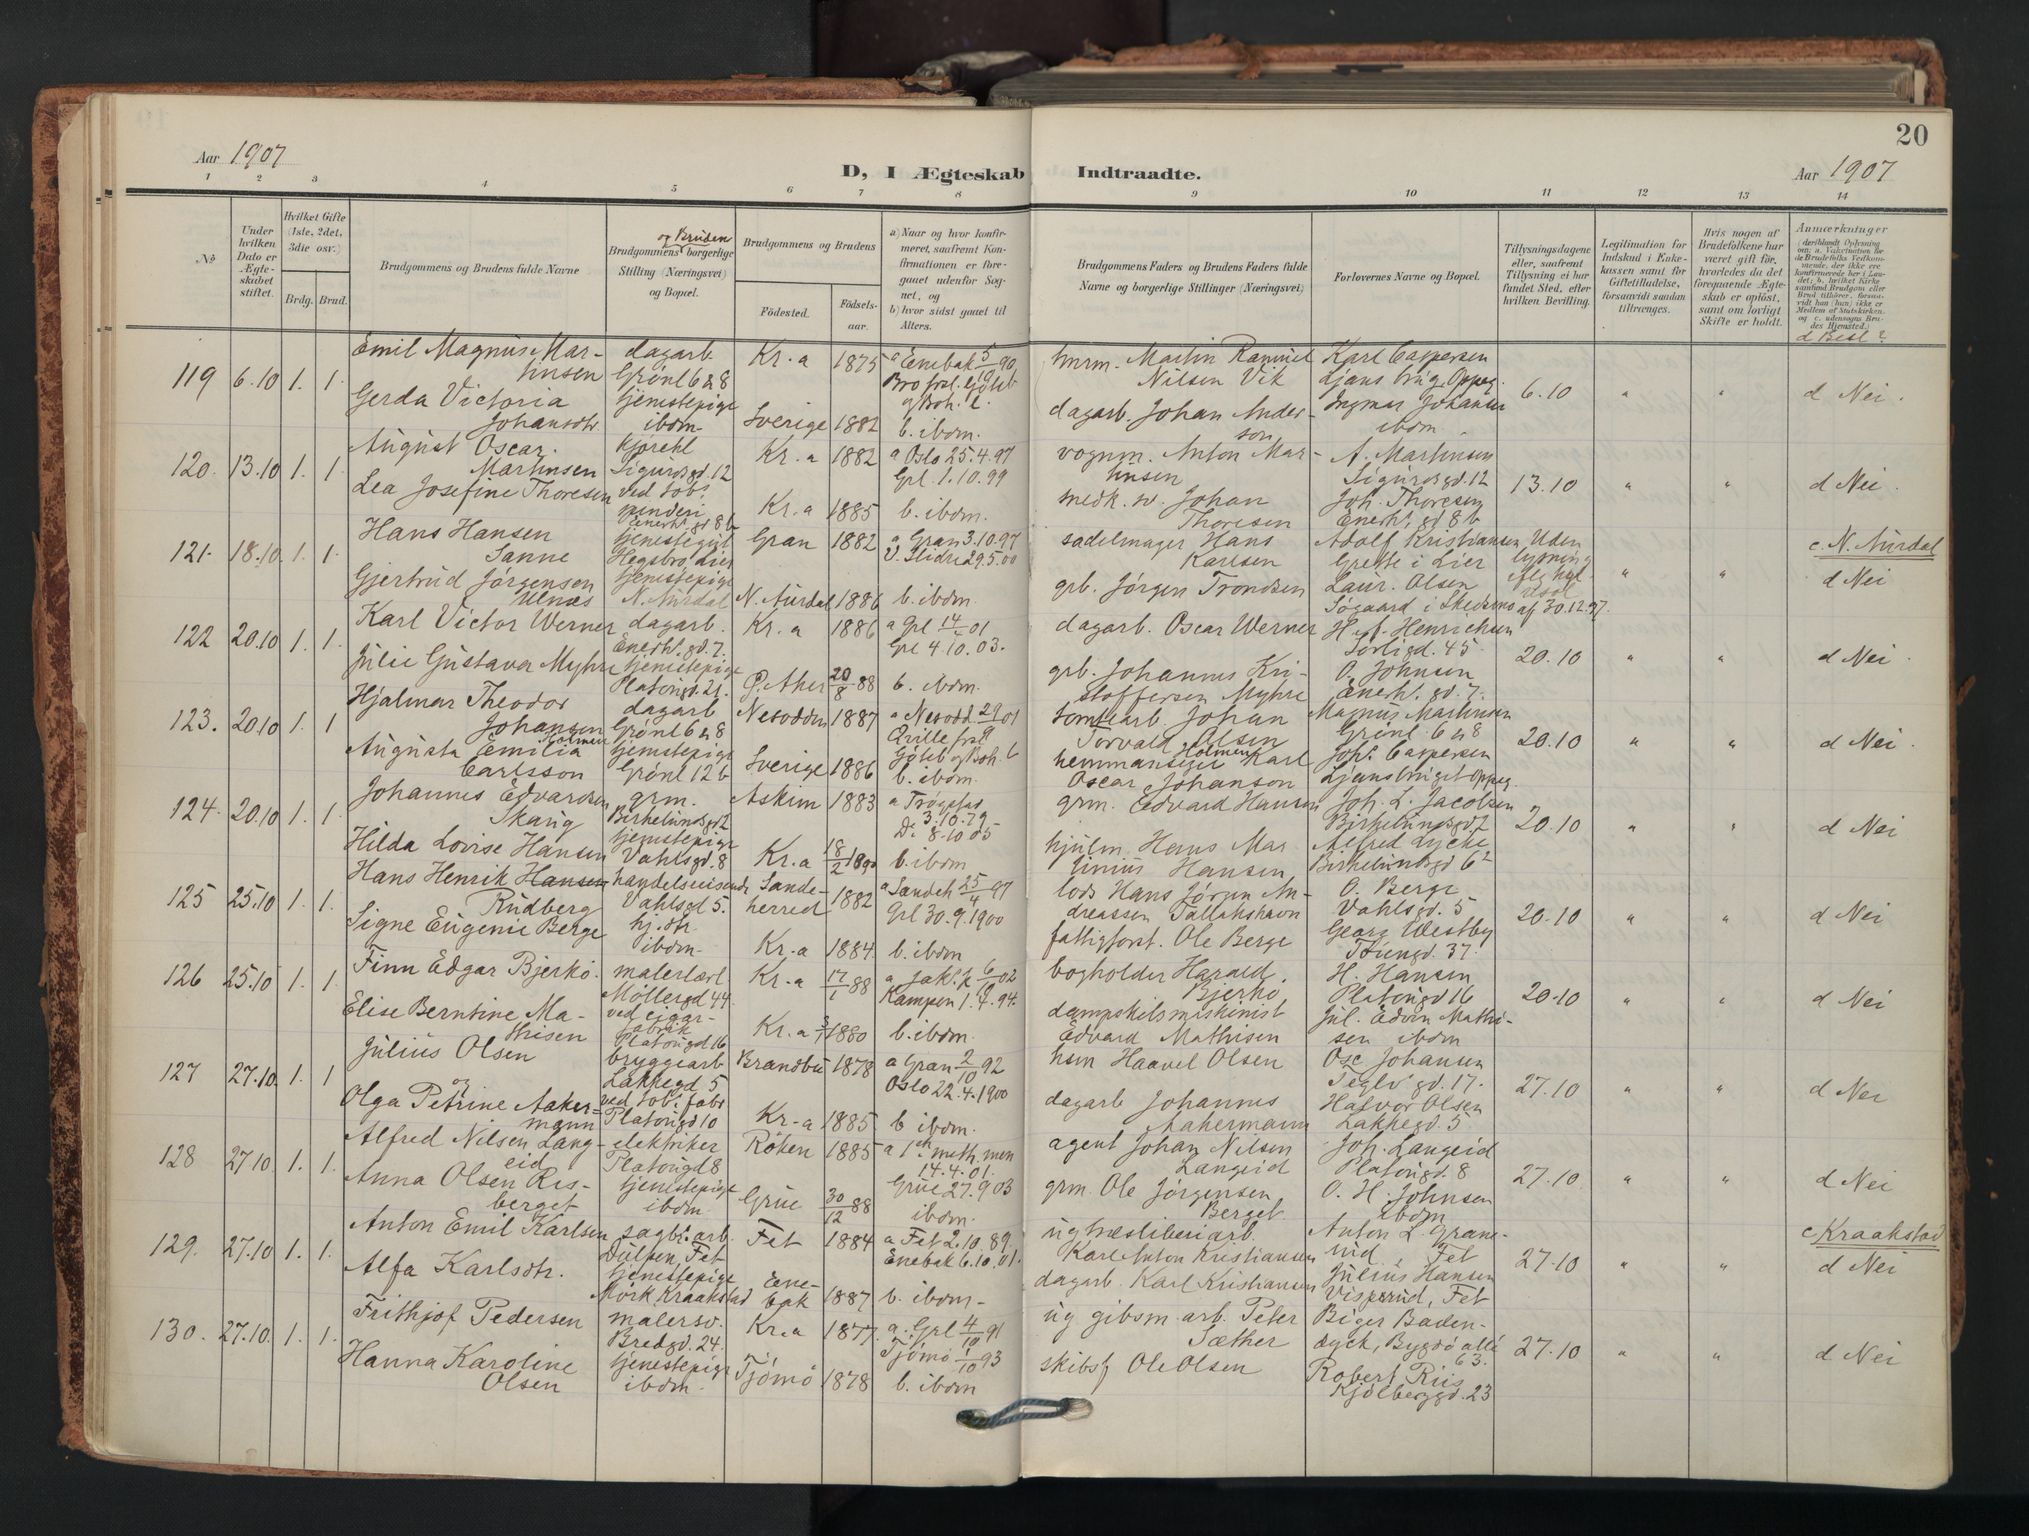 20
Aar 1907
D, I Ægteskab Indtraadte.
Aar 1907
1 2 3 4 5 6 7 8 9 10 11 12 13 14
№
Under hvilken Dato er Ægteskabet stiftet.
Hvilket Gifte (1ste, 2det, 3die osv.)
Brdg. Brud.
Brudgommens og Brudens fulde Navne
Brudgommens og Bruden borgerlige Stilling (Næringsvei) og Bopæl.
Brudgommens og Brudens
Fødested.
Fødselsaar.
a) Naar og hvor konfirmeret, saafremt Konfirmationen er foregaaet udenfor Sognet, og
b) hvor sidst gaaet til Alters.
Brudgommens Faders og Brudens Faders fulde Navne og borgerlige Stillinger (Næringsvei)
Forlovernes Navne og Bopæl.
Tillysningsdagene eller, saafremt Tillysning ei har fundet Sted, efter hvilken Bevilling.
Legitimation for Indskud i Enkekassen samt for Giftetilladelse, forsaavidt saadan tiltrænges.
Hvis nogen af Brudefolkene har været gift før, hvorledes da det foregaaende Ægteskab er opløst, samt om lovligt Skifte er holdt.
Anmærkninger
d Besl?
119 6.10 1. 1.
Emil Magnus Martinsen
dagarb Grønl 6 & 8
Kr.a 1875
a Enebak 5/10 90
Gerda Victoria Johansdtr
tjenestepige ibdm.
Sverige 1882
b. ibdm.
tmrm. Martin Ramuel Nilsen Vik
dagarb. Johan Anderson
Karl Caspersen Ljansbrug. Oppeg.
Ingmar Johansen ibdm.
6.10 " " d Nei.
120. 13.10 1. 1.
August Oscar Martinsen
kjørekl Sigurdsgd. 12
Kr.a 1882
a Oslo 25.4.97
Grl. 1.10.99
Lea Josefine Thoresen
ved tobs. spinderi Enerh. gd 8b
Kr.a 1885
b. ibdm.
vognm. Anton Martinsen
medk. sv. Johan Thoresen
A. Martinsen Sigurdsgd. 12
Joh. Thoresen Enerh. gd 8b
13.10 " " d Nei.
121. 18.10. 1. 1.
Hans Hansen Sanne
tjenestegut Hegsbro, Lier
Gran 1882
a Gran 3.10.97
V. Slidre 29.5.00
Gjertrud Jørgensen Ulnæs
tjenestepige N. Aurdal
N. Aurdal 1886
b. ibdm.
sadelmager Hans Karlsen
grb. Jørgen Trondsen
Adolf Kristiansen Grette i Lier
Laur. Olsen Søgaard i Skedsmo
Uden lysning
af 30.12.97.
" "
c. N. Aurdal
d Nei
122 20.10 1. 1.
Karl Victor Werner
dagarb. Enerh. gd. 7.
Kr.a 1886
Grl 4.10.03.
Julie Gustava Myhre
tjenestepige Platousgd. 21.
Ø. Aker 20/8 88
b. ibdm.
dagarb. Oscar Werner
grb. Johannes Kristoffersen Myhre
H. A. Henrichsen Sørligd. 45.
O. Johnsen Enerh. gd. 7.
20.10 " " d Nei.
123. 20.10 1. 1.
Hjalmar Theodor Johansen Holmen
dagarb Grønl 6 & 8
Nesodden 1887
Augusta Emilia Carlsson
tjenestepige Grønl 12b
Sverige 1886
b. ibdm.
tomtearb. Johan Torvald Olsen Holmen
hemmanseger Karl Oscar Johanson
Magnus Martinsen Grønl. 6 & 8
Joh. Caspersen Ljansbruget Oppeg.
20.10 " " d Nei.
124. 20.10 1. 1.
Johannes Edvardsen Skaug
grm. Birkelundsgd 2
Askim 1883
a Trøgstad
Hilda Lovise Hansen
tjenestepige Vahlsgd. 8
Kr.a 18/2 1890
b. ibdm
grm. Edvard Hansen
hjulm. Hans Martinius Hansen
Joh. L. Jacobsen Birkelundsgd 2
Alfred Lycke Birkelundsgd 6
20.10 " " d Nei
125 25.10 1. 1.
Hans Henrik Hansen Rudberg
handelsreisende Vahlsgd 5.
Sandeherred 1882
a Sandeh 25/4 97
Grl 30.9.1900
Signe Eugenie Berge
hj. dtr. ibdm.
Kr.a 1884.
b. ibdm
lods Hans Jørgen Andreassen Tallakshavn
fattigforst. Ole Berge
O. Berge Vahlsgd. 5
Georg Westby
20.10 " " d Nei
126 25.10 1. 1.
Finn Edgar Bjerkø.
malerlærl Møllergd 44.
Kr.a 17/1 88
Kampen 1.4.94.
Elise Berntine Mathisen
ved cigarfabrik Platougd 16
Kr.a 1880
b. ibdm.
bogholder Harald Bjerkø
dampskibsmaskinist Edvard Mathisen
H. Hansen Platougd 16
Jul. Edvin Mathisen ibdm
20.10 " " d Nei
127 27.10. 1. 1
Julius Olsen
og
bryggearb Lakkegd 5
Brandbu 1878
a Gran 2/10 92
Oslo 22.4.1900
Olga Petrine Aakermann
ved tobs. fabr Platougd 10
Kr.a 1885
b ibdm.
hsm Haavel Olsen
dagarb Johannes Aakermann
Osc Johansen Teglv. gd. 17.
Halvor Olsen Lakkegd. 5.
27.10 " " d Nei
128 27.10. 1. 1.
Alfred Nilsen Langeid
elektriker Platougd 8
Røken 1885
a 1ste meth. men 14.4.01.
Grue 27.9.03
Anna Olsen Risberget
tjenestepige ibdm
Grue 30/12 88
ibdm.
agent Johan Nilsen Langeid
grm. Ole Jørgensen Berget.
Joh. Langeid Platougd. 8
O. H. Johnsen ibdm
27.10. " " d Nei
129. 27.10. 1. 1.
Anton Emil Karlsen
sagbr. arb. Dulpen, Fet
Fet 1884
a Fet 2.10.89.
Enebak 6.10.01.
Alfa Karlsdtr.
tjenestepige Mørk Kraakstad
Enebak 1887
b. ibdm.
Karl Anton Kristiansen
dagarb. Karl Kristiansen
Anton L. Granerud, Fet
Julius Hansen Visperud, Fet
27.10 " "
c Kraakstad
d Nei
130. 27.10. 1. 1.
Frithjof Pedersen
malersv. Bredgd. 24.
Kr.a 1877.
a. Grl 4/10 91
Tjømø 1/10 93
Hanna Karoline Olsen
tjenestepige ibdm.
Tjømø 1878
b. ibdm
ug gibsm. arb. Peter Sæther
skibsf Ole Olsen
Biger Badendyck, Bygdø allé 63.
Robert Riis Kjølberggd. 23
27.10 " " d Nei